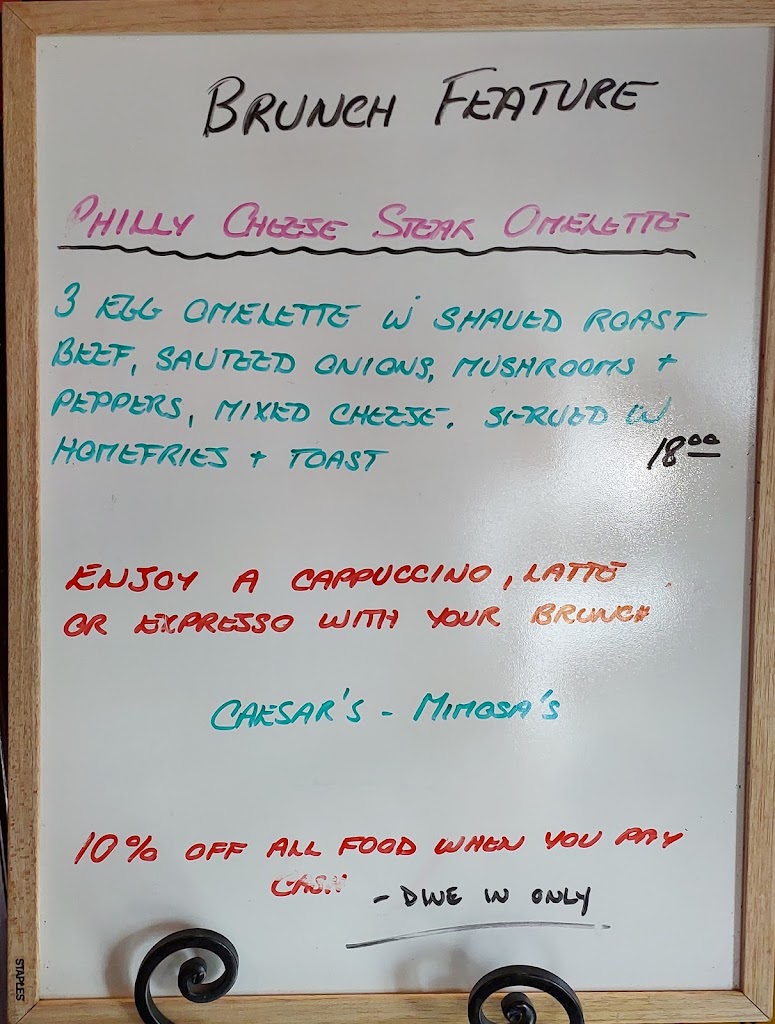 BRUNCH FEATURE
PHILLY CHEESE STEAK OMELETTE
3 EGG OMELETTE W SHAVED ROAST
BEEF, SAUTEED ONIONS, MUSHROOMS +
PEPPERS, MIXED CHEESE. SERVED W
HOMEFRIES + TOAST
18.00
ENJOY A CAPPUCCINO, LATTE
OR EXPRESSO WITH YOUR BRUNCH
CAESAR'S - MIMOSA'S
10% OFF ALL FOOD WHEN YOU PAY
CASH
- DINE IN ONLY
STAPLES